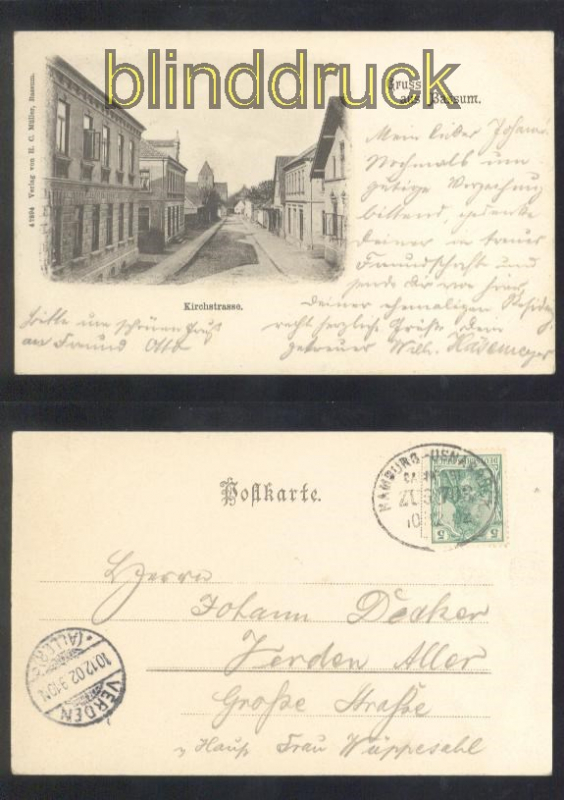 blinddruck
Gruss
aus Bassum.
47894 Verlag von H. C. Müller, Bassum.
Mein lieber Johann!
Nochmals um
gütige Verzeihung
bittend, gedenke
deiner in treuer
Freundschaft und
sende dir von hier,
deiner ehemaligen
recht herzliche Grüße dein
getreuer Willi. Hasemeyer
Kirchstrasse.
Bitte um schönen Gruß
an Freund Otto
Postkarte.
HAMBURG-
ZUG
10 12 02
5 5
Herrn
Johann Decker
Verden Aller
Große Straße
Haus Frau Wüppesahl
VERDEN
10.12.02
(ALLER)